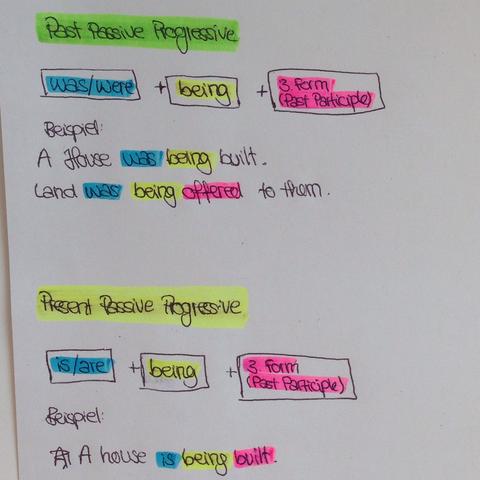 Past Passive Progressive
was/were + being + 3. Form (Past Participle)
Beispiel:
A House was being built.
Land was being offered to them.
Present Passive Progressive
is/are + being + 3. Form (Past Participle)
Beispiel:
A house is being built.